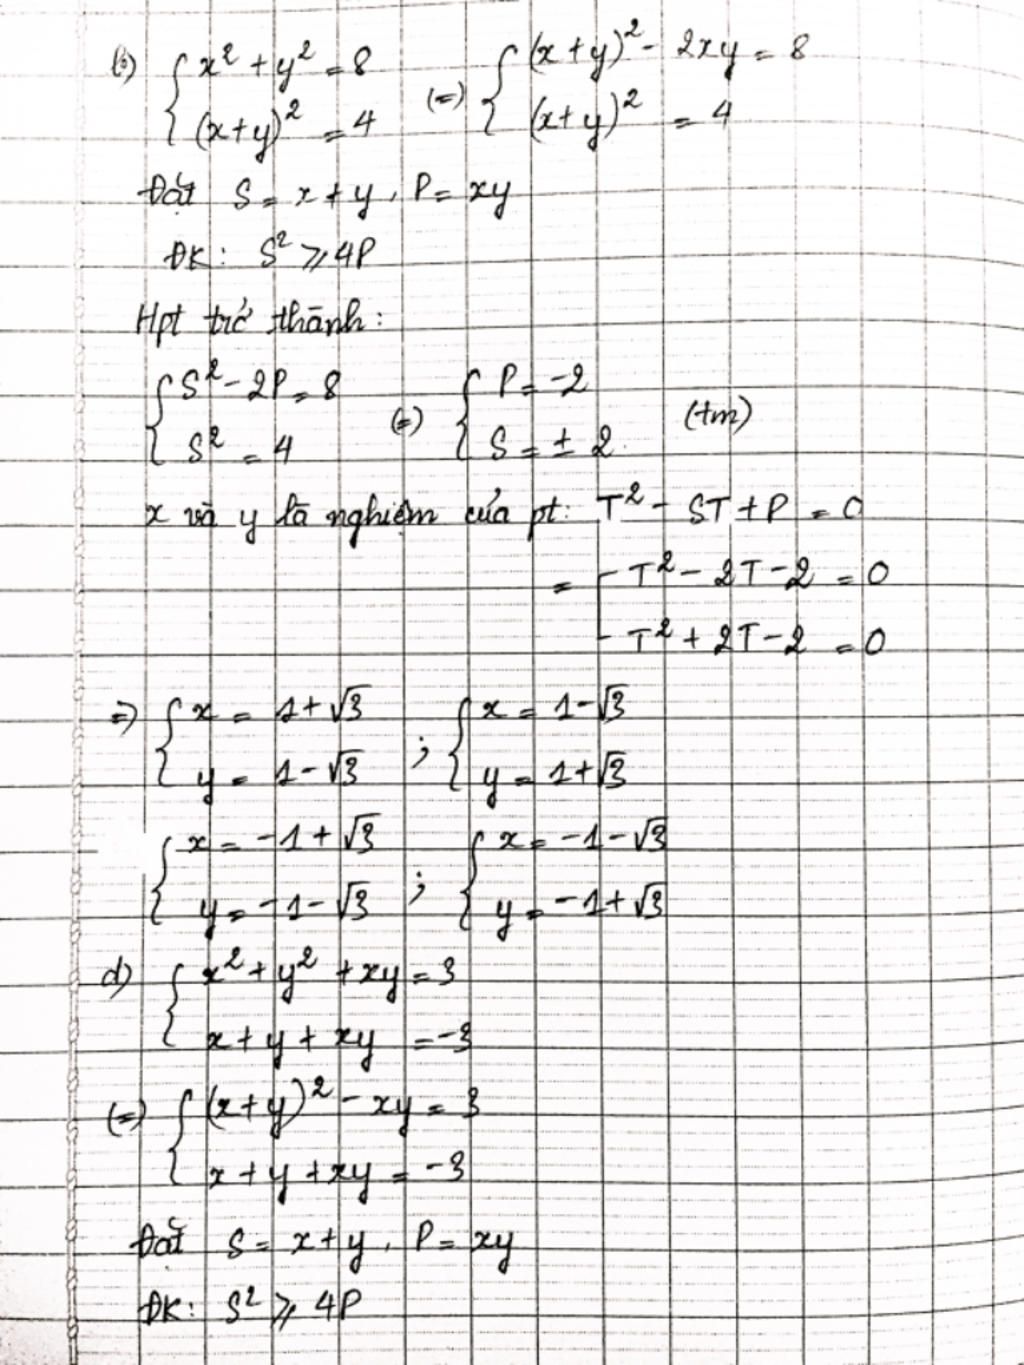 b) { x² + y² = 8 (=) { (x + y)² - 2xy = 8
(x+y)² = 4 (x+y)² = 4
Đặt S = x + y, P = xy
ĐK: S² ⩾ 4P
Hpt trở thành:
{ S² - 2P = 8 (=) { P = -2
S² = 4 S = ± 2 (tm)
x và y là nghiệm của pt: T² - ST + P = 0
= [ T² - 2T - 2 = 0
T² + 2T - 2 = 0
=) { x = 1 + √3 ; { x = 1 - √3
y = 1 - √3 y = 1 + √3
{ x = -1 + √3 ; { x = -1 - √3
y = -1 - √3 y = -1 + √3
d) { x² + y² + xy = 3
x + y + xy = -3
(=) { (x + y)² - xy = 3
x + y + xy = -3
Đặt S = x + y, P = xy
ĐK: S² ⩾ 4P